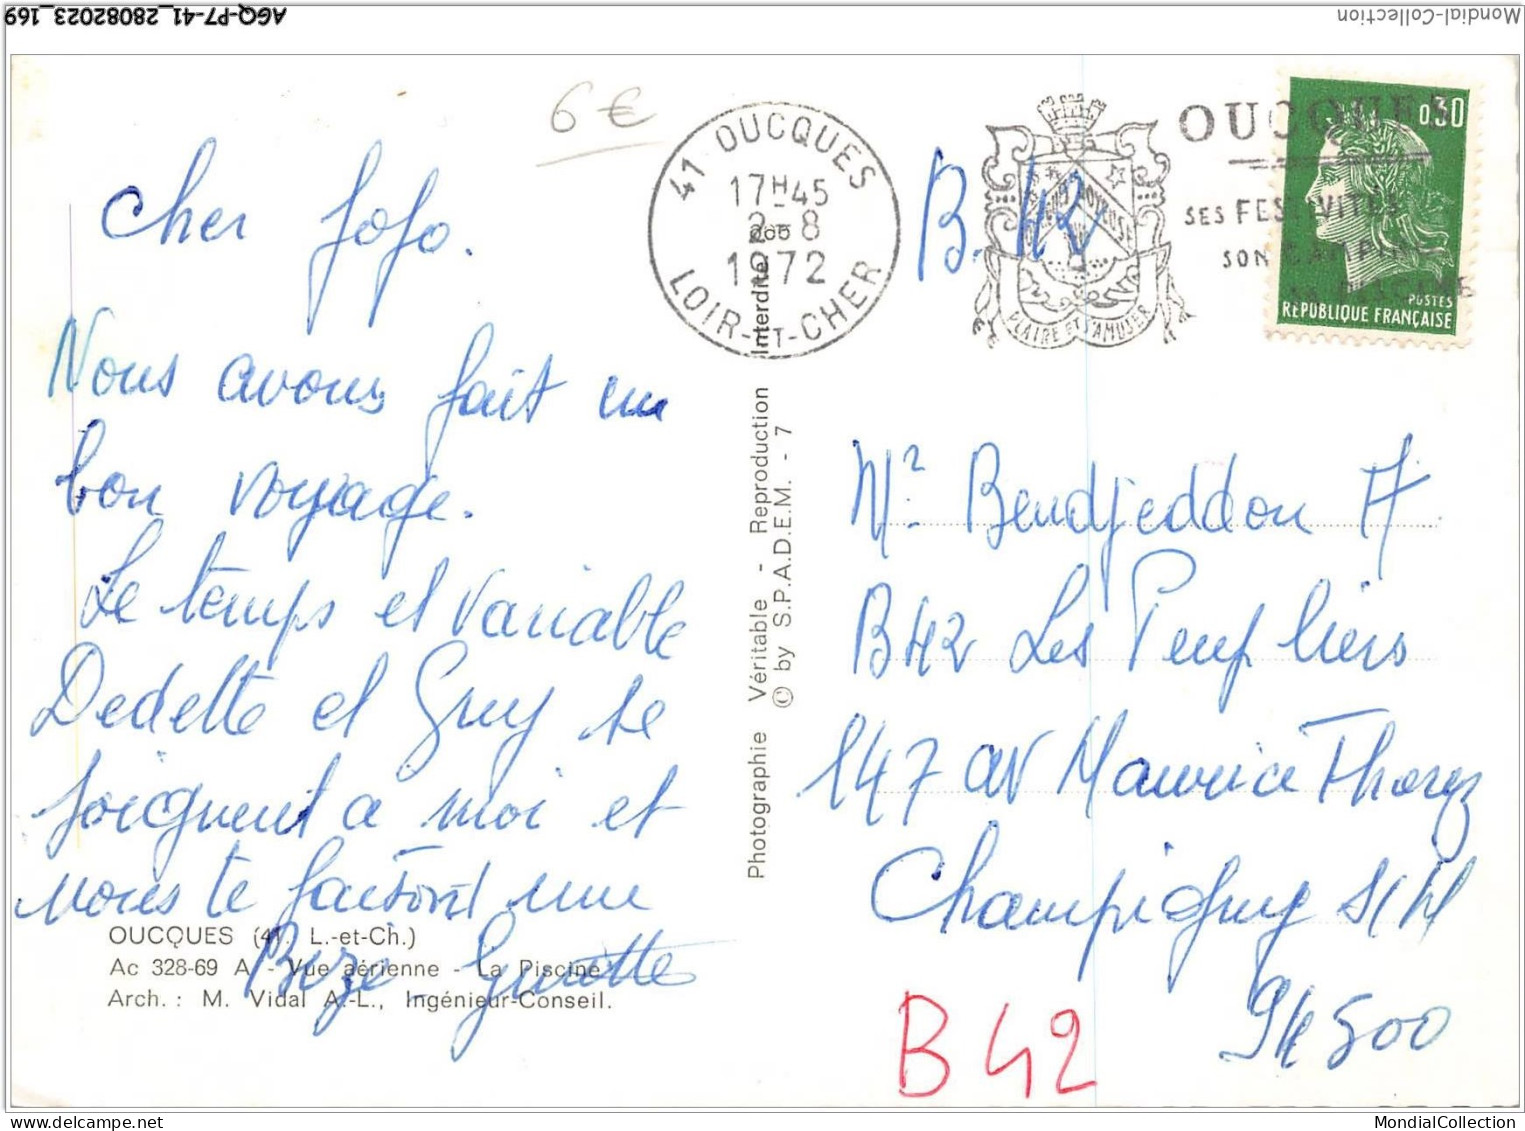 AGQ-P7-41_28082023_169
Mondial-Collection
6€
41 OUCQUES
17H45
2-8
1972
LOIR-ET-CHER
PLAIRE ET S'AMUSER
OUCQUES
SES FESTIVITÉS
SON CAMPING
0,30
POSTES
REPUBLIQUE FRANÇAISE
B. 42
Cher Jojo.
Nous avons fait un
bon voyage.
Le temps et variable
Dedette et Guy se
joignent a moi et
nous te faisons une
Bize - Guiotte
OUCQUES (41. L.-et-Ch.)
Ac 328-69 A - Vue aérienne - La Piscine
Arch. : M. Vidal A.-L., Ingénieur-Conseil.
Photographie Véritable - Reproduction Interdite
© by S.P.A.D.E.M. - 7
Mr Bendjeddou A
B42 Les Peupliers
147 av Maurice Thorez
Champigny S/M
94500
B 42
MondialCollection